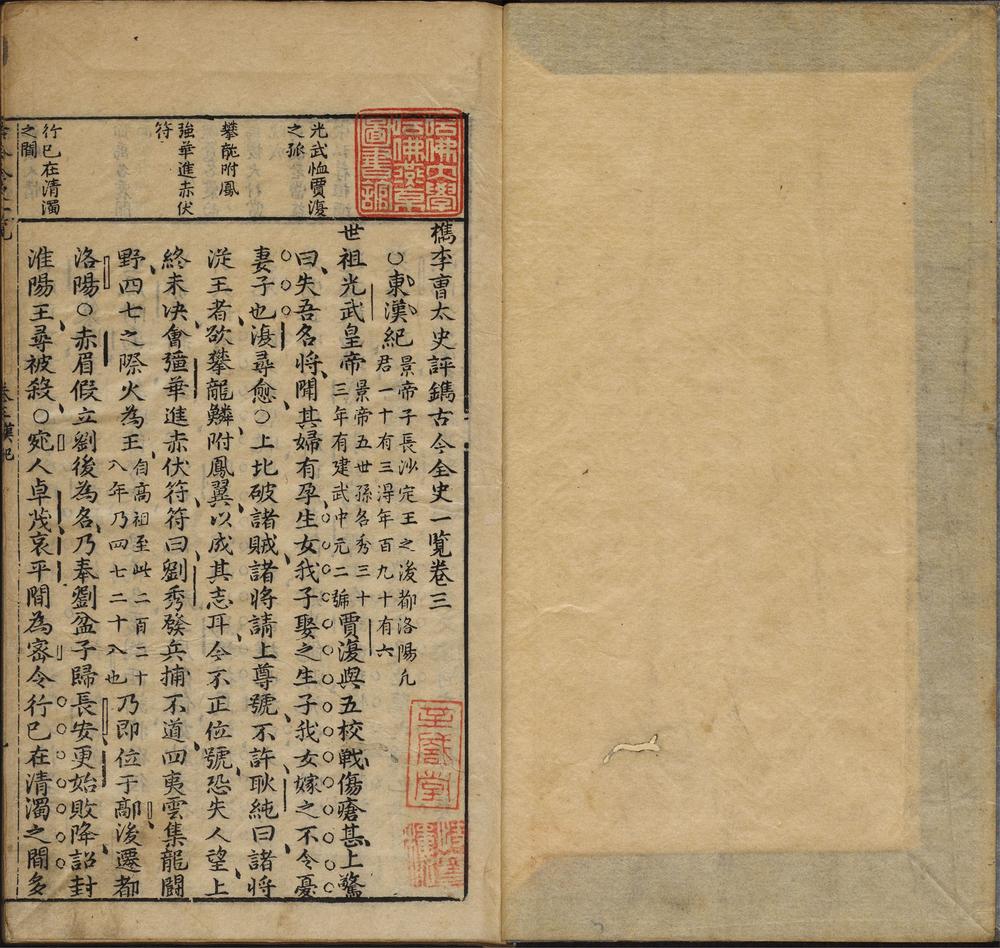 檇李曹太史評鐫古今全史一覧卷三
○東漢紀景帝子長沙定王之後都洛陽凢
君一十有三淂年百九十有六
世祖光武皇帝景帝五世孫名秀三十
三年有建武中元二號賈復與五校戰傷瘡甚上驚
曰失吾名将聞其婦有孕生女我子娶之生子我女嫁之不令憂
妻子也復尋愈○上比破諸賊諸將請上尊號不許耿純曰諸將
従王者欲攀龍鱗附鳳翼以成其志耳今不正位號恐失人望上
終未决會彊華進赤伏符符曰劉秀發兵捕不道四夷雲集龍闘
野四七之際火為王自高祖至此二百二十
八年乃四七二十八也乃即位于鄗後遷都
洛陽○赤眉假立劉後為名乃奉劉盆子歸長安更始敗降詔封
淮陽王尋被殺○宛人卓茂哀平間為密令行已在清濁之間多
光武恤賈復
之孤
攀龍附鳳
強華進赤伏
符
行已在清濁
之間
哈佛大學
哈佛燕京
圖書館